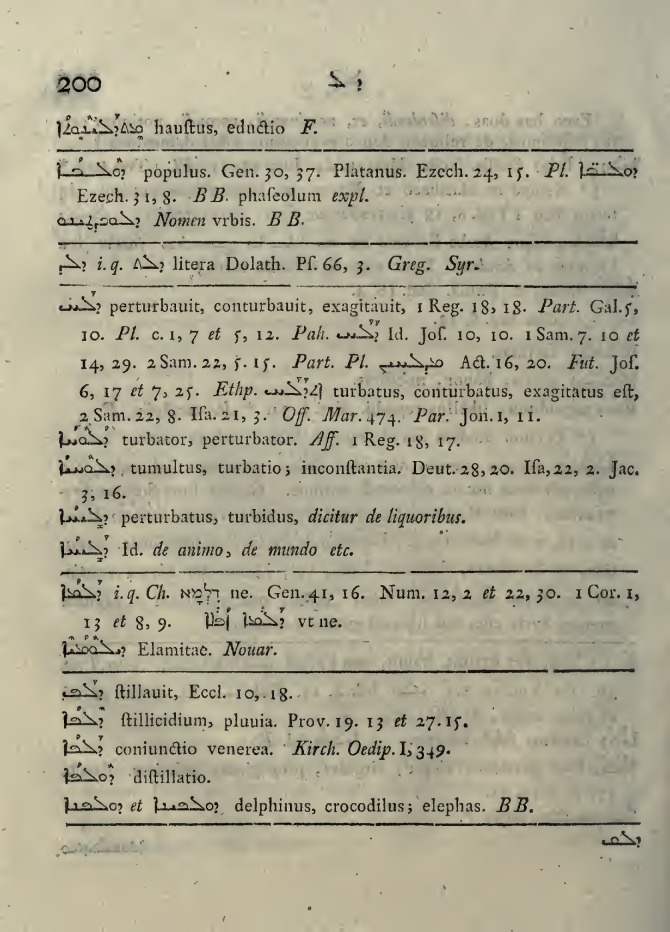 200 ܕܠ
hauſtus, eductio F.
populus. Gen. 30, 37. Platanus. Ezech. 24, 15. Pl.
Ezech. 31, 8. B B. phaſeolum expl.
Nomen vrbis. B B.
i. q. litera Dolath. Pſ. 66, 3. Greg. Syr.
ܕܠܚ perturbauit, conturbauit, exagitauit, 1 Reg. 18, 18. Part. Gal. 5,
10. Pl. c. 1, 7 et 5, 12. Pah. ܕܠܚ Id. Joſ. 10, 10. 1 Sam. 7. 10 et
14, 29. 2 Sam. 22, 5. 15. Part. Pl. ܡܕܠܚܝܢ Act. 16, 20. Fut. Joſ.
6, 17 et 7, 25. Ethp. ܐܬܕܠܚ turbatus, conturbatus, exagitatus eſt,
2 Sam. 22, 8. Iſa. 21, 3. Off. Mar. 474. Par. Jon. 1, 11.
ܕܠܘܚܐ turbator, perturbator. Aff. 1 Reg. 18, 17.
ܕܠܘܚܝܐ tumultus, turbatio; inconſtantia. Deut. 28, 20. Iſa, 22, 2. Jac.
3, 16.
ܕܠܝܚܐ perturbatus, turbidus, dicitur de liquoribus.
ܕܠܝܚܐ Id. de animo, de mundo etc.
ܕܠܡܐ i. q. Ch. דִּלְמָא ne. Gen. 41, 16. Num. 12, 2 et 22, 30. 1 Cor. 1,
13 et 8, 9. ܐܟܢܐ ܕܠܡܐ vt ne.
Elamitae. Nouar.
ܕܠܦ ſtillauit, Eccl. 10, 18.
ܕܠܦܐ ſtillicidium, pluuia. Prov. 19. 13 et 27. 15.
ܕܠܦܐ coniunctio venerea. Kirch. Oedip. I, 349.
ܕܘܠܦܐ diſtillatio.
ܕܘܠܦܢܐ et ܕܘܠܦܝܢܐ delphinus, crocodilus; elephas. B B.